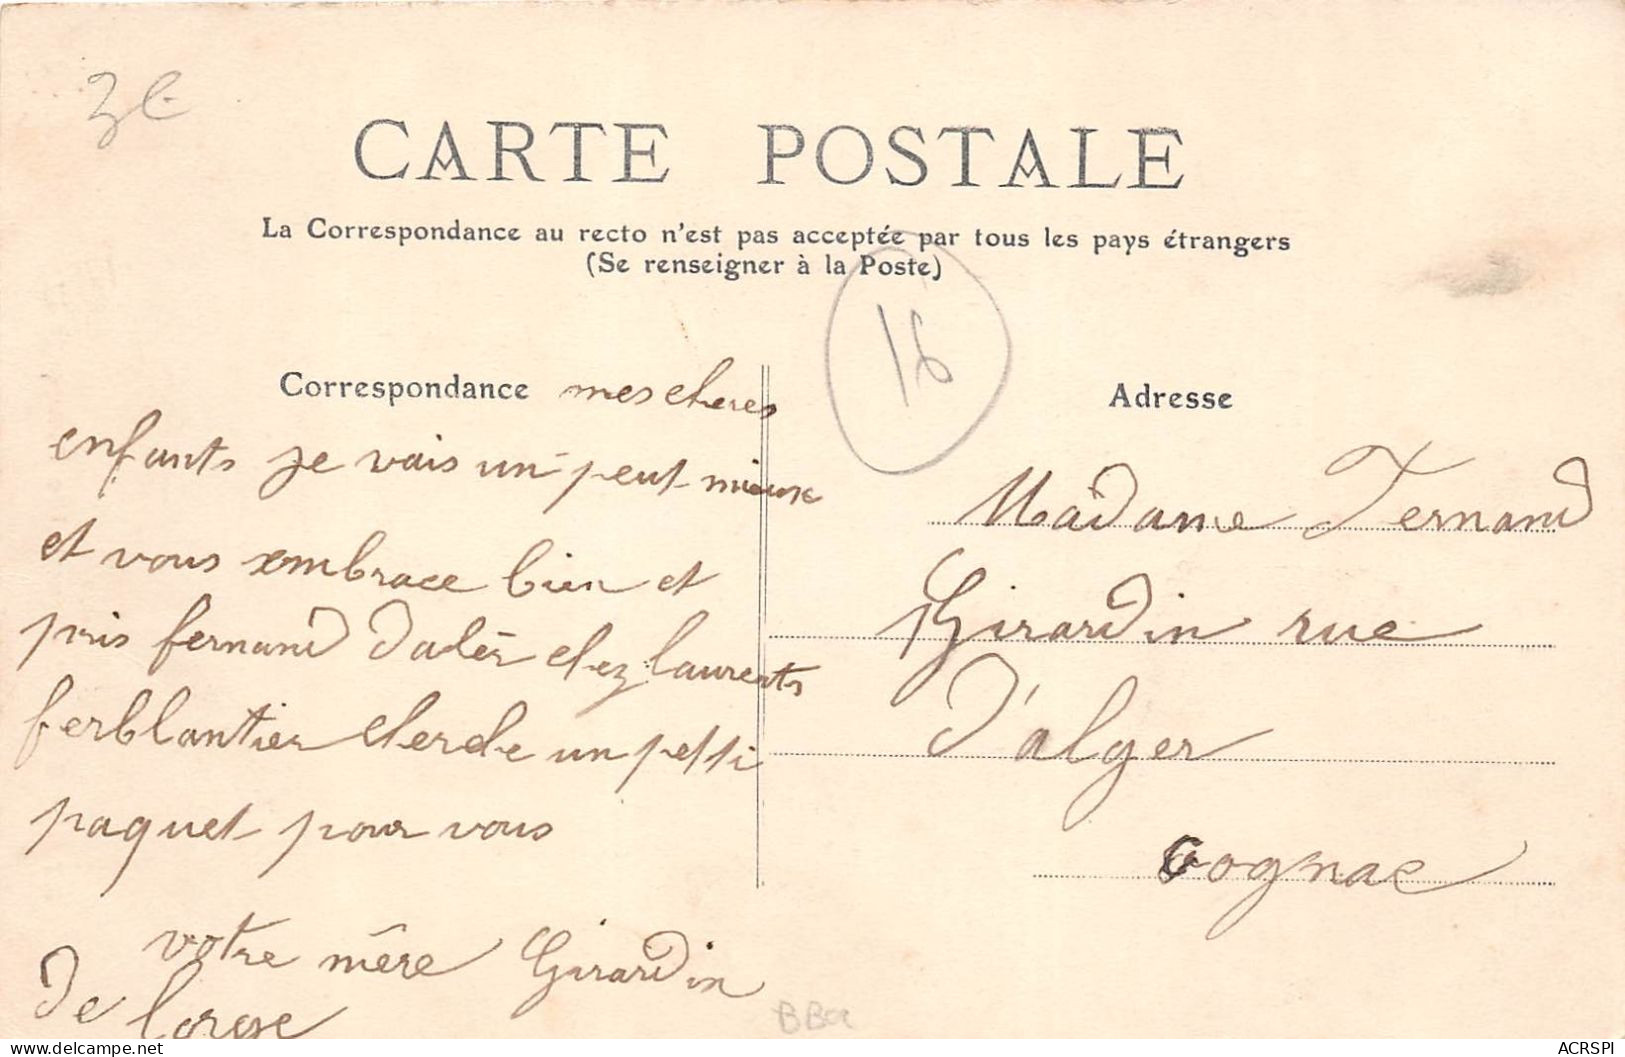 3€
CARTE POSTALE
La Correspondance au recto n'est pas acceptée par tous les pays étrangers
(Se renseigner à la Poste)
16
Correspondance mes cheres
enfants je vais un peut mieux
et vous embrace bien et
pris fernand d'alér chez laurents
ferblantier cherche un petti
paquet pour vous
votre mére Girardin
De lorge
Adresse
Madame Fernand
Girardin rue
D'alger
cognac
BBa
ACRSPI